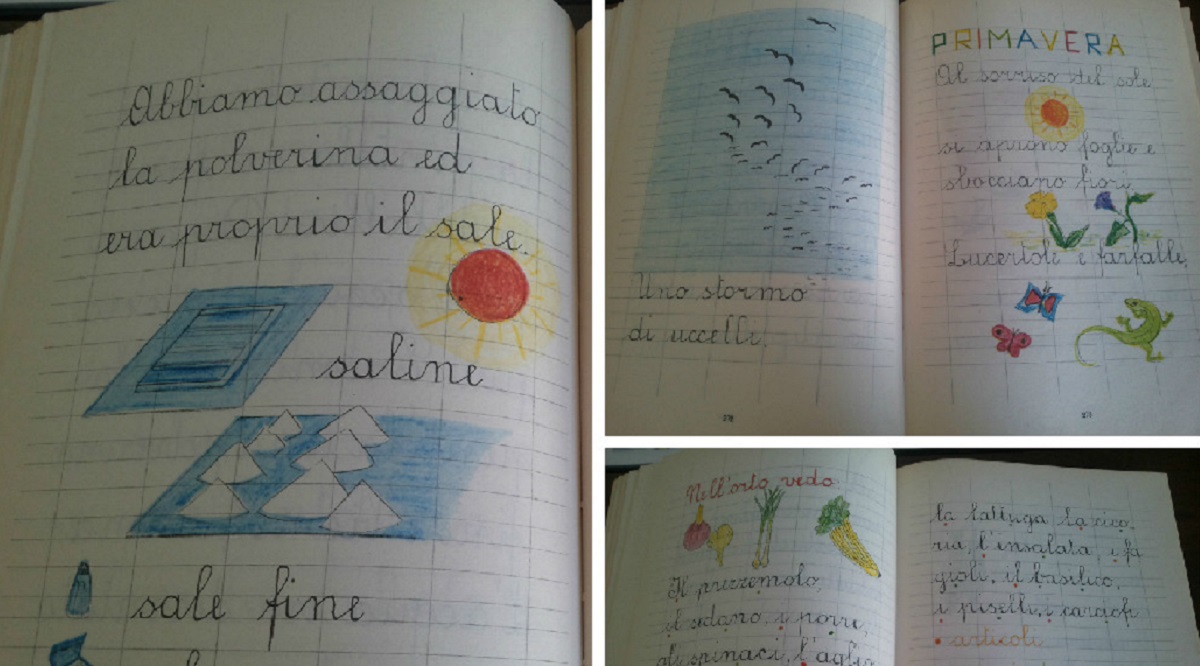 Abbiamo assaggiato
la polverina ed
era proprio il sale.
saline
sale fine
Uno stormo
di uccelli.
PRIMAVERA
Al sorriso del sole
si aprono foglie e
sbocciano fiori
Lucertole e farfalle,
Nell'orto vedo
Il prezzemolo,
il sedano, i porri,
gli spinaci, l'aglio
la lattuga la cico,
ria, l'insalata, i fa
gioli, il basilico,
i piselli, i carciofi
articoli